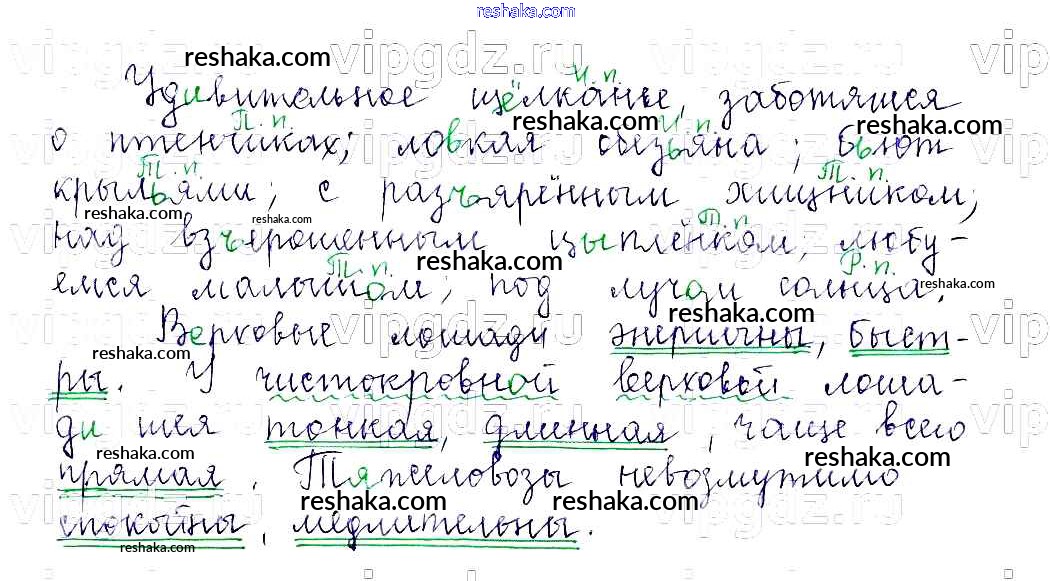 reshaka.com
Удивительное щёлканье, заботящеся
И. п.
о птенчиках; ловкая обезьяна; бьют
П. п. И. п.
крыльями; с разъярённым хищником;
Т. п. Т. п.
над взъерошенным цыплёнком, любу-
П. п.
емся малышом; под лучам солнца.
Т. п. Р. п.
Верховые лошади энергичны, быст-
ры. У чистокровной верховой лоша-
ди шея тонкая, длинная, чаще всего
прямая. Тяжеловозы невозмутимо
спокойны, медлительны.